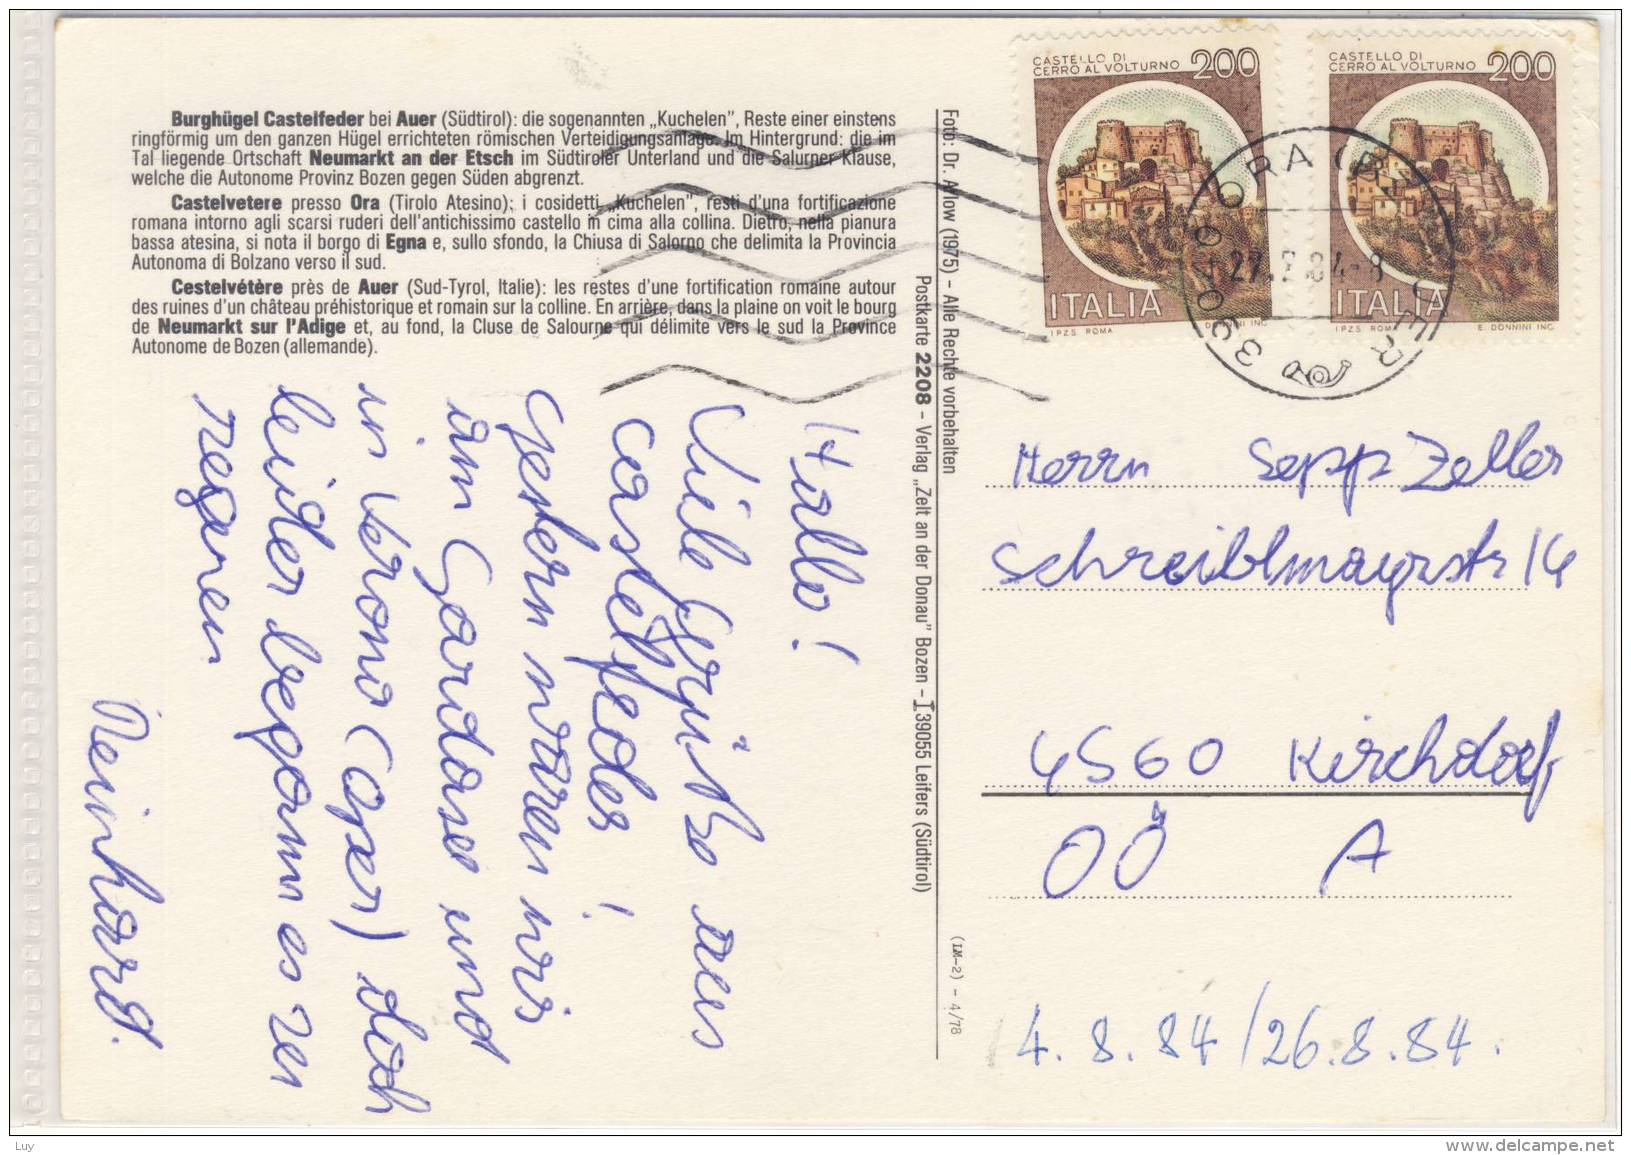 Burghügel Castelfeder bei Auer (Südtirol): die sogenannten „Kuchelen", Reste einer einstens
ringförmig um den ganzen Hügel errichteten römischen Verteidigungsanlage. Im Hintergrund: die im
Tal liegende Ortschaft Neumarkt an der Etsch im Südtiroler Unterland und die Salurner Klause,
welche die Autonome Provinz Bozen gegen Süden abgrenzt.
Castelvetere presso Ora (Tirolo Atesino): i cosidetti „Kuchelen", resti d'una fortificazione
romana intorno agli scarsi ruderi dell'antichissimo castello in cima alla collina. Dietro, nella pianura
bassa atesina, si nota il borgo di Egna e, sullo sfondo, la Chiusa di Salorno che delimita la Provincia
Autonoma di Bolzano verso il sud.
Cestelvétère près de Auer (Sud-Tyrol, Italie): les restes d'une fortification romaine autour
des ruines d'un château préhistorique et romain sur la colline. En arrière, dans la plaine on voit le bourg
de Neumarkt sur l'Adige et, au fond, la Cluse de Salourne qui délimite vers le sud la Province
Autonome de Bozen (allemande).
Hallo!
Viele Grüße aus
Castelfeder!
Gestern waren wir
am Gardasee und
in Verona (Oper) doch
leider begann es zu
regnen
Reinhard.
Foto: Dr. Arlow (1975) – Alle Rechte vorbehalten
Postkarte 2208 – Verlag „Zelt an der Donau" Bozen – I 39055 Leifers (Südtirol)
(LM-2) - 4/78
CASTELLO DI
CERRO AL VOLTURNO 200
ITALIA
I.P.Z.S. ROMA DONNINI INC.
CASTELLO DI
CERRO AL VOLTURNO 200
ITALIA
I.P.Z.S. ROMA E. DONNINI INC.
39040 ORA
Herrn Sepp Zeller
Schreiblmayrstr 14
4560 Kirchdorf
OÖ A
4.8.84/26.8.84.
Luy
www.delcampe.net